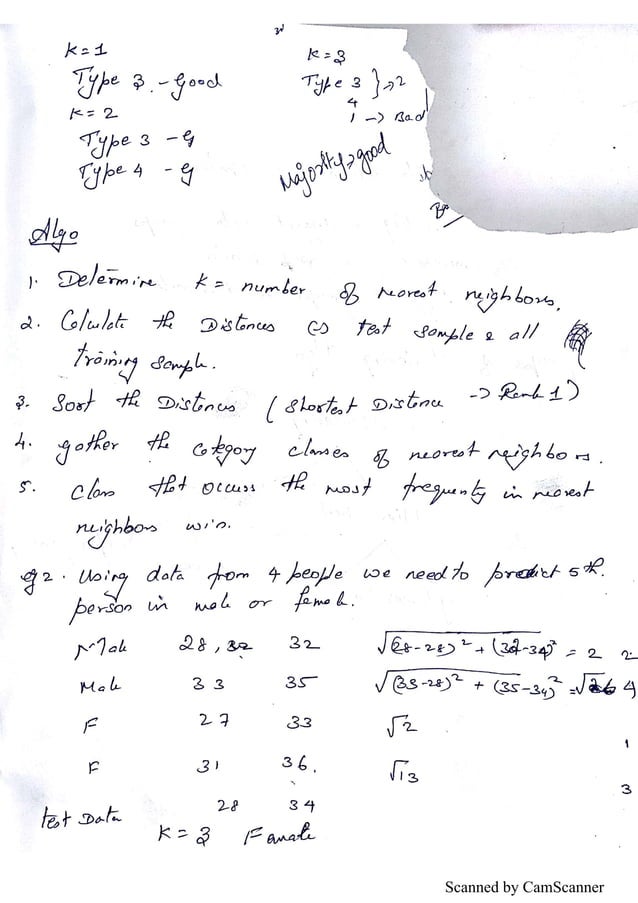 K=1
Type 3. - Good
K=2
Type 3 - G
Type 4 - G
K=3
Type 3 } => 2
4
1 -> Bad
Majority => good
Algo
1. Determine K = number of nearest neighbors.
2. Calculate the Distances test sample & all
training sample.
3. Sort the Distances (Shortest Distance -> Rank 1)
4. gather the category classes of nearest neighbors.
5. Class that occurs the most frequenty in nearest
neighbors win.
eg 2. Using data from 4 people we need to predict 5th.
person in male or female.
Male 28, 32 32 √(28-28)² + (32-34)² = 2 2
Male 33 35 √(33-28)² + (35-34)² = √26 4
F 27 33 √2 1
F 31 36. √13 3
test Data 28 34
K = 3 Female
Scanned by CamScanner